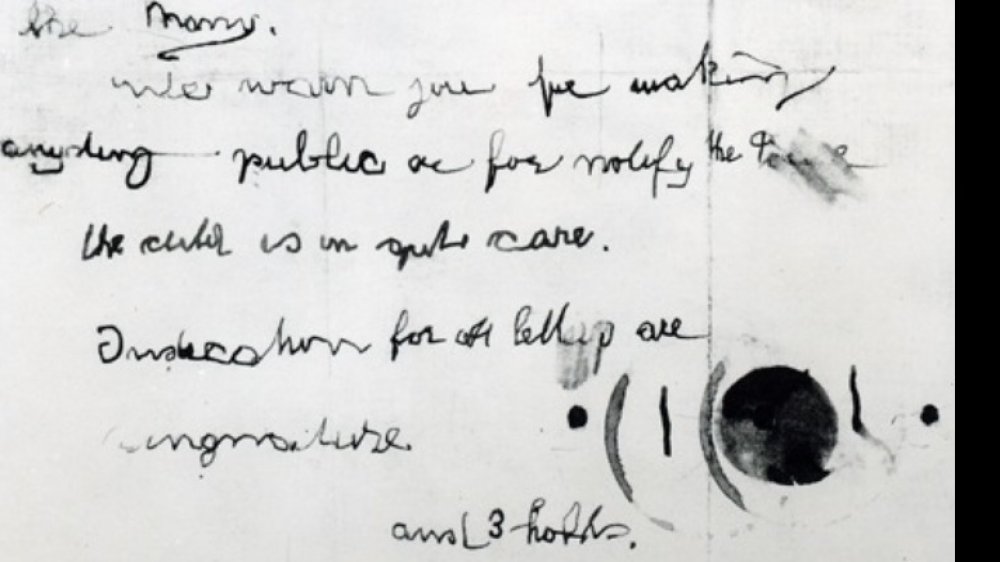 the mony.
we warn you for making
anyding public or for notify the
the child is in gute care.
for all letters are
singnature
and 3 holds.